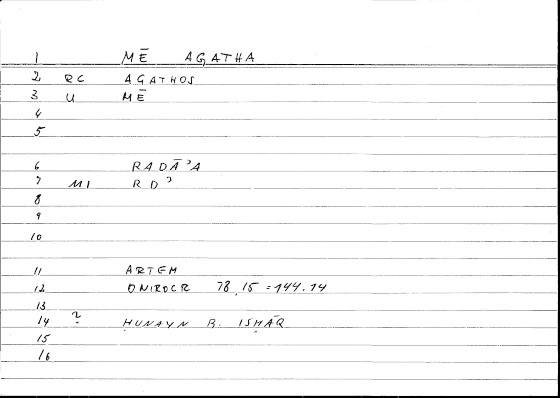 1 MĒ AGATHA
2 RC AGATHOS
3 U MĒ
4
5
6 RADĀʾA
7 MI RDʾ
8
9
10
11 ARTEM
12 ONIROCR 78,15 = 144.14
13
14 ? ḤUNAYN B. ISḤĀQ
15
16